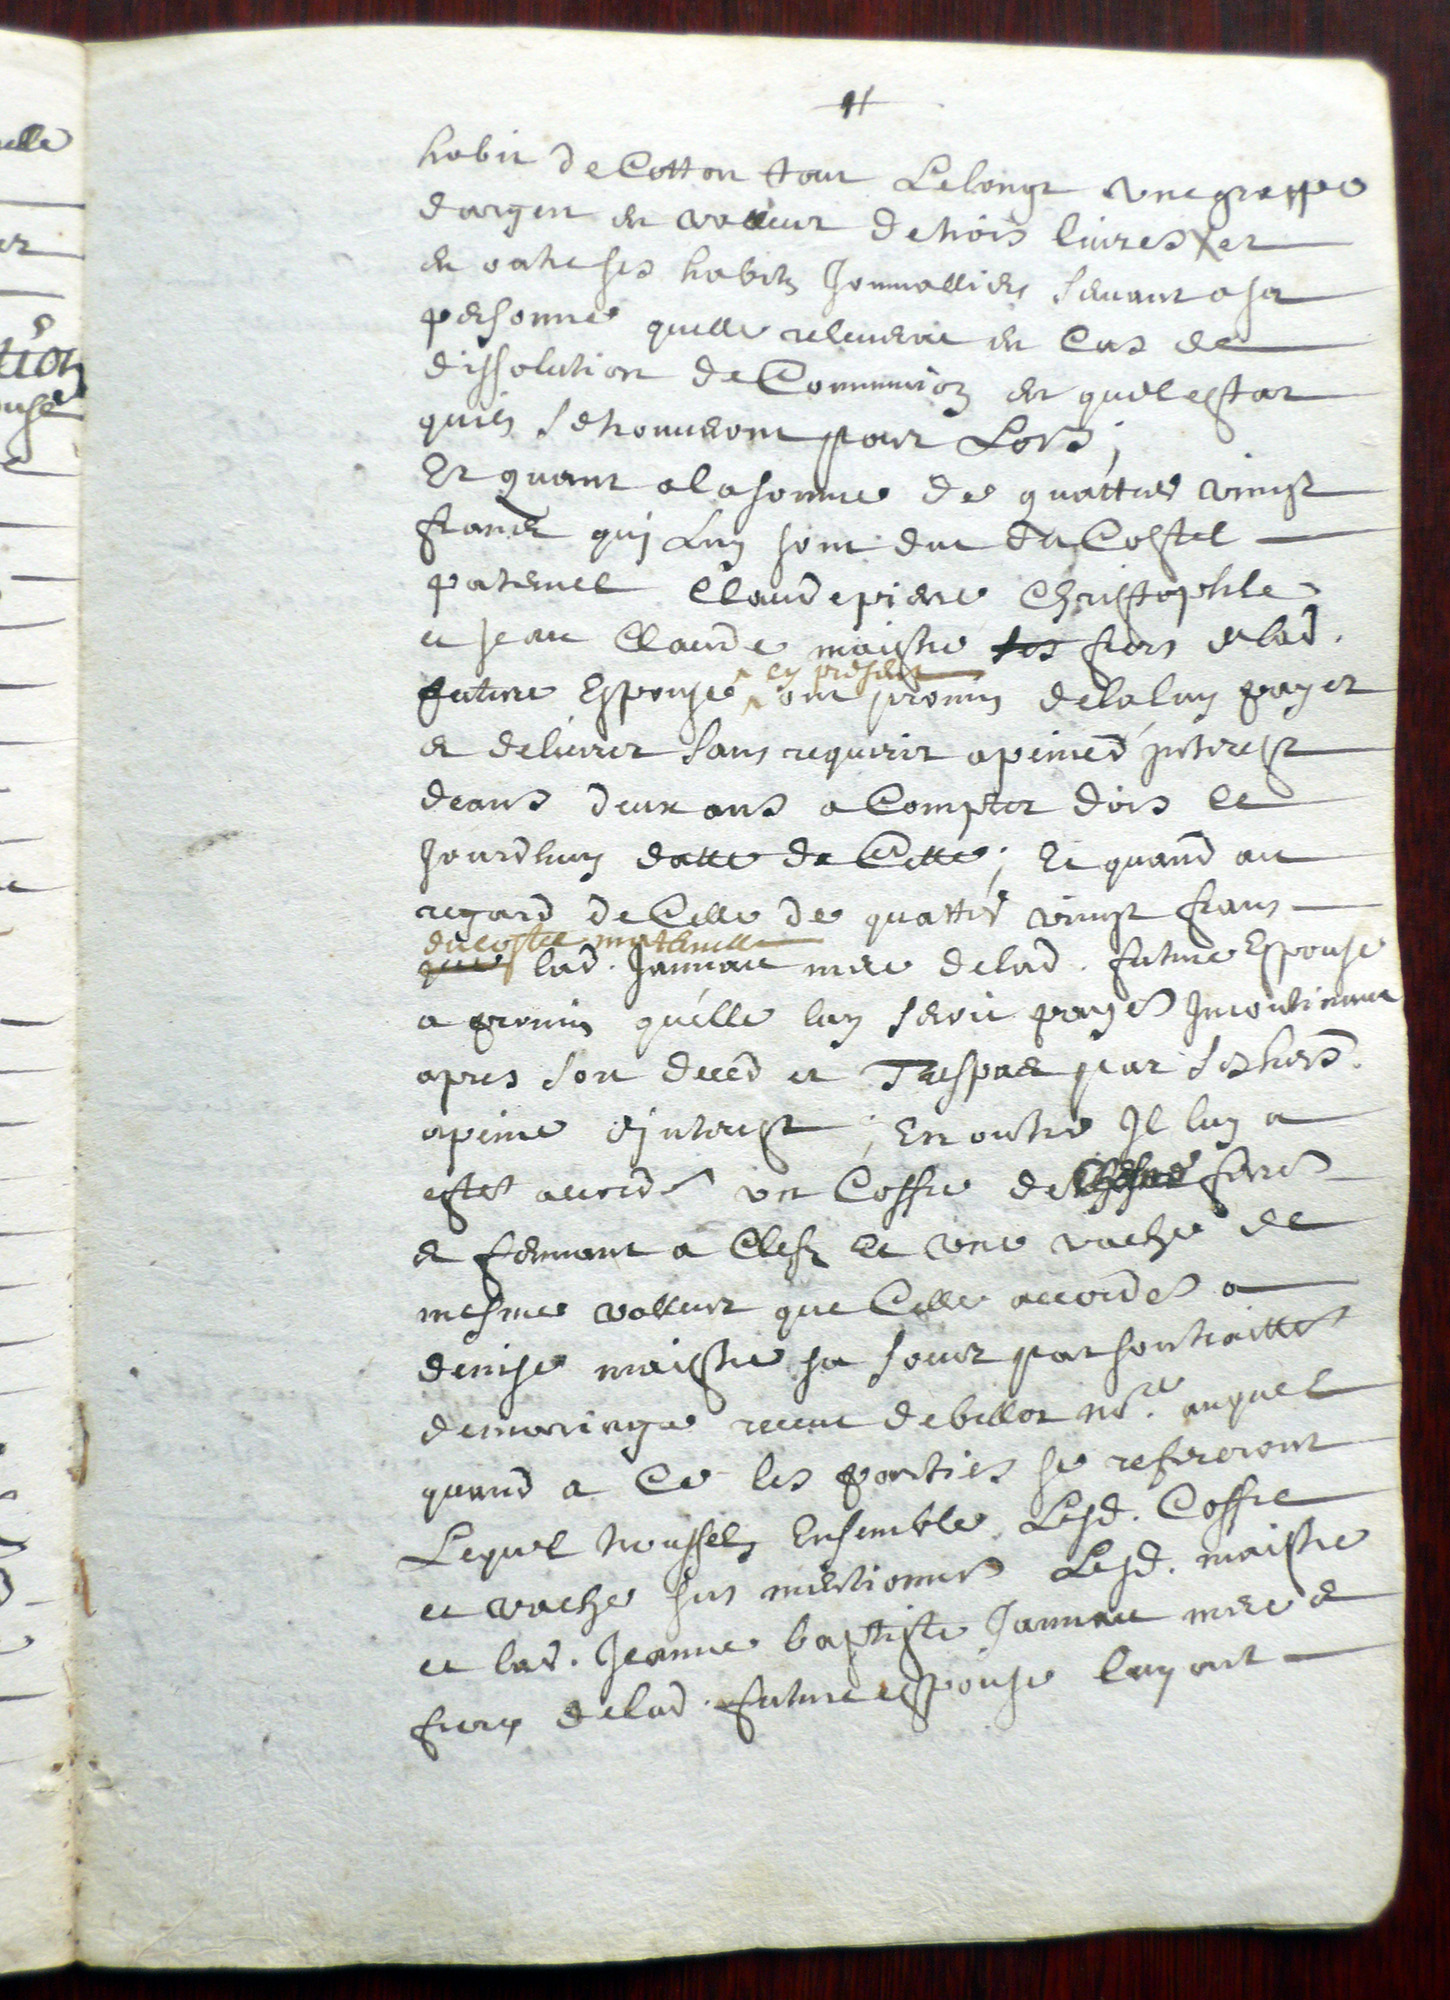 habit de Cotton tout Lelongt une grappe
dargent en valleur de trois livres et
en outre ses habits Journalliers servant a sa
personne quelle releverat en Cas de
dissolution de Communion en quel estat
quils se trouveront pour Lors ;
Et quant a la somme de quattre vingt
francs quj Luy sont dut du Costel
paternel Claude pierre Christophle
et Jean Claude maistre ses frers de lad.
future Espouse cy presens ont promis de la luy payer
et delivrer sans requerir a peine d'jnterest
deans deux ans a Compter dois le
Jourdhuy datte de Cette ; Et quand au
regard de Celle de quattre vingt frans
du costel maternelle
que lad. Jannau mere de lad. future Espouse
a promis qu'elle luy seroit payer Incontinant
apres son deced et Trespas par ses hers.
a peine d'jnterest ; En outre Il luy a
estes accordé un Coffre de Chesne ferré
et fermant a Clefz et une vache de
mesme valleur que Celle accordes a
denise maistre sa soeur par son traitté
de mariage receut de billot nre. auquel
quand a Ce les parties se refereront
Lequel troussel Ensemble Lesd. Coffre
et vache sus mentionnes Lesd. maistre
et lad. Jeanne baptiste Jannau mere et
frers de lad. future espouse luy ont